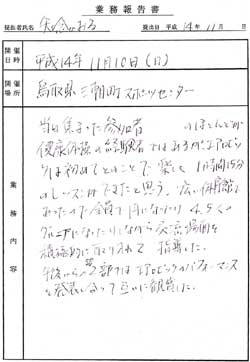 業務報告書
提出者氏名 矢 かおる 提出日 平成 14年 11月 日
開催日時 平成14年 11月10日(日)
開催場所 鳥取県三朝町スポーツセンター
業務内容
当日集まった参加者 のほとんどが
健康体操の経験者ではあるがエアロビック
は初めてとのことで 楽しく 1時間15分
のレースができたと思う。広い体育館で
あったので全員で円になったり 4、5人の
グループになったりしながら 交流場面を
積極的に取り入れて 指導した。
午後からの 部ではエアロビックのパフォーマンス
を発表し合って互いに観賞した。